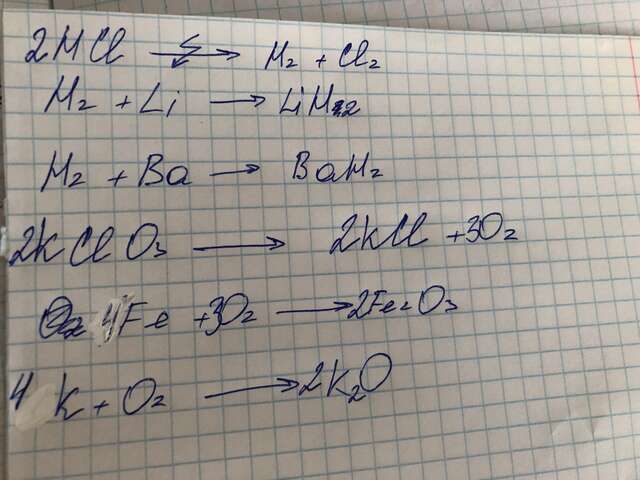 2HCl ⟶ H₂ + Cl₂
H₂ + Li → LiH₂
H₂ + Ba → BaH₂
2KClO₃ → 2KCl + 3O₂
4Fe + 3O₂ → 2Fe₂O₃
4K + O₂ → 2K₂O